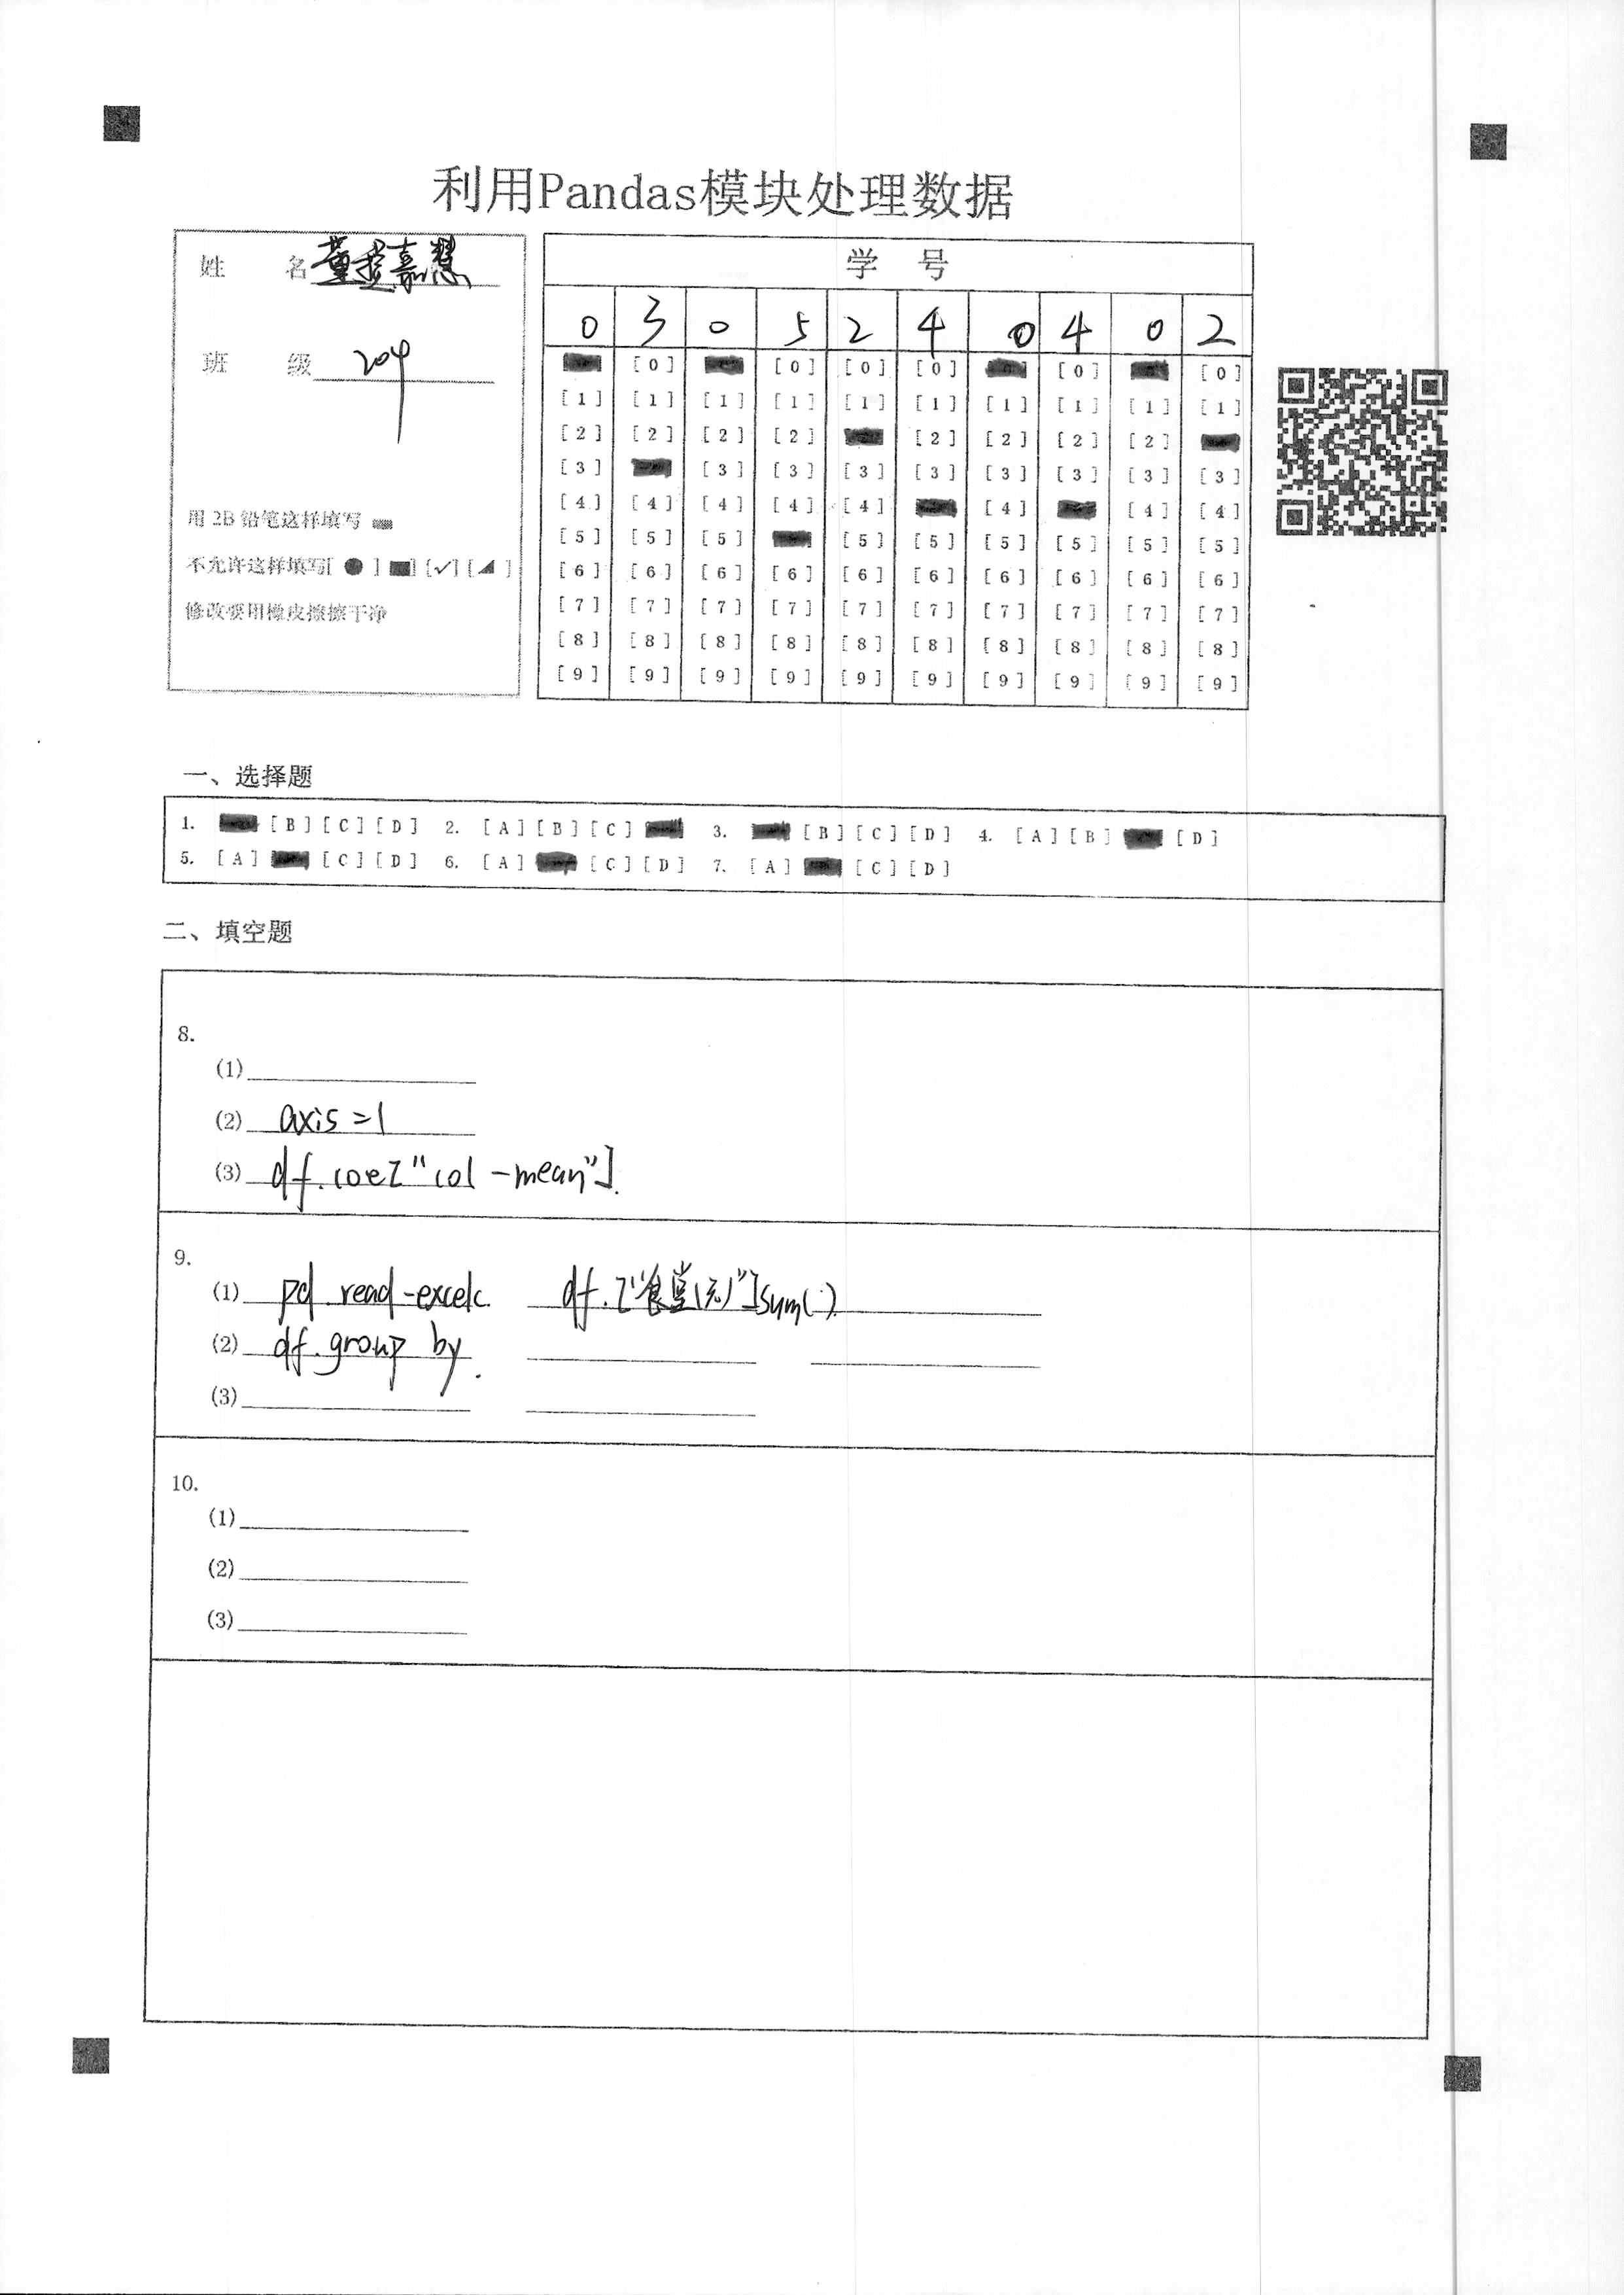 利用Pandas模块处理数据
姓 名 董 嘉慧
班 级 204
用 2B 铅笔这样填写
不允许这样填写[ ● ] [✓] [◢ ]
修改要用橡皮擦擦干净
学 号
0 3 0 5 2 4 0 4 0 2
[0] [0] [0] [0] [0] [0]
[1] [1] [1] [1] [1] [1] [1] [1] [1] [1]
[2] [2] [2] [2] [2] [2] [2] [2]
[3] [3] [3] [3] [3] [3] [3] [3] [3]
[4] [4] [4] [4] [4] [4] [4] [4]
[5] [5] [5] [5] [5] [5] [5] [5] [5]
[6] [6] [6] [6] [6] [6] [6] [6] [6] [6]
[7] [7] [7] [7] [7] [7] [7] [7] [7] [7]
[8] [8] [8] [8] [8] [8] [8] [8] [8] [8]
[9] [9] [9] [9] [9] [9] [9] [9] [9] [9]
一、选择题
1. [B] [C] [D] 2. [A] [B] [C] 3. [B] [C] [D] 4. [A] [B] [D]
5. [A] [C] [D] 6. [A] [C] [D] 7. [A] [C] [D]
二、填空题
8.
(1)
(2) axis =1
(3) df.loc["col -mean"].
9.
(1) pd read-excelc. df.["食堂(元)"]sum().
(2) df.group by.
(3)
10.
(1)
(2)
(3)